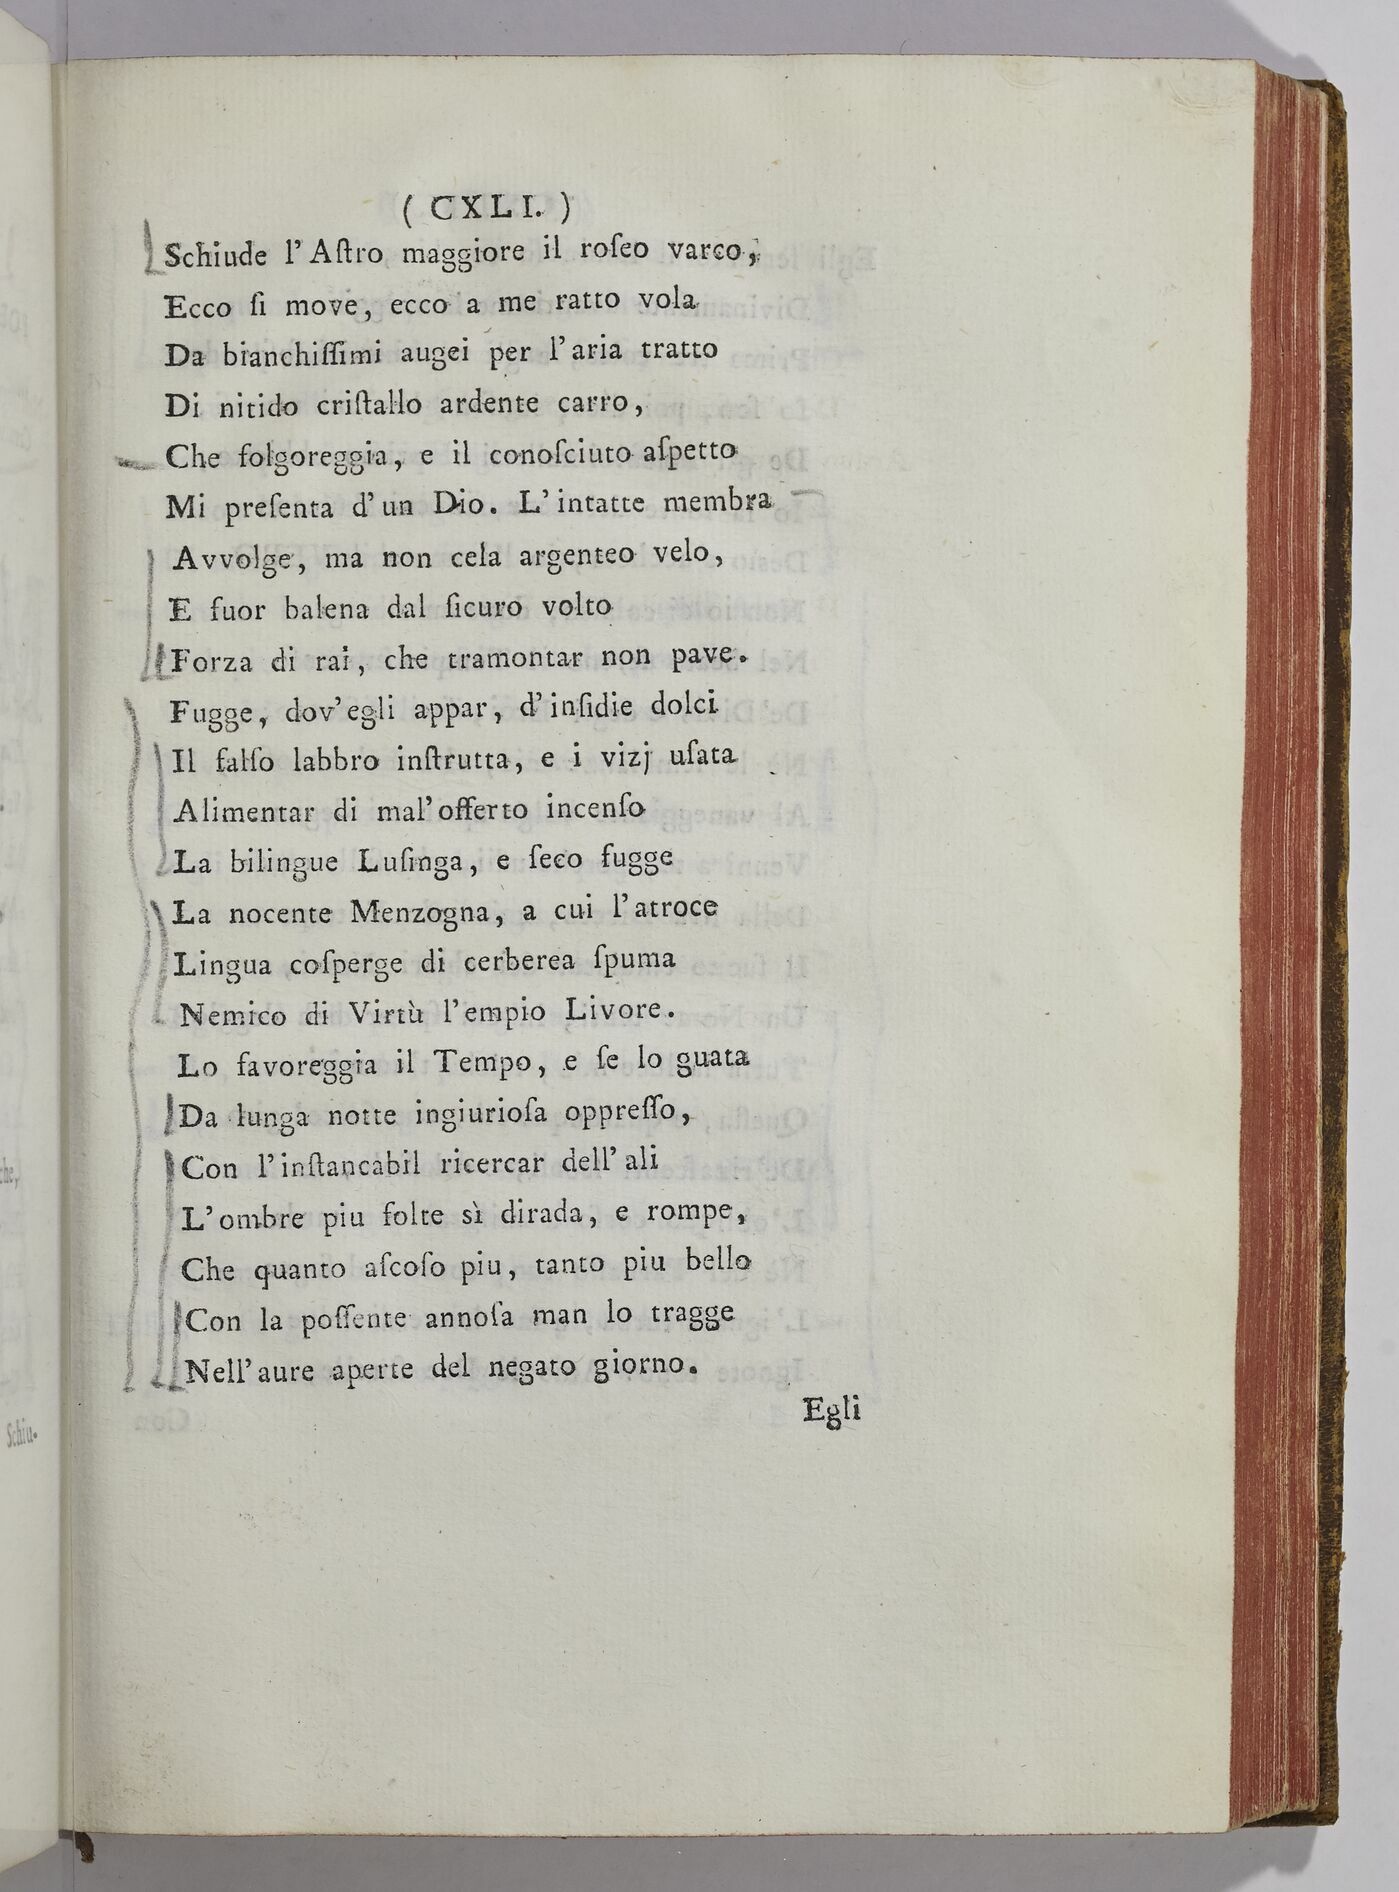 ( CXLI. )
Schiude l'Aſtro maggiore il roſeo varco,
Ecco ſi move, ecco a me ratto vola
Da bianchiſſimi augei per l'aria tratto
Di nitido criſtallo ardente carro,
Che folgoreggia, e il conoſciuto aſpetto
Mi preſenta d'un Dio. L'intatte membra
Avvolge, ma non cela argenteo velo,
E fuor balena dal ſicuro volto
Forza di rai, che tramontar non pave.
Fugge, dov'egli appar, d'inſidie dolci
Il falſo labbro inſtrutta, e i vizj uſata
Alimentar di mal'offerto incenſo
La bilingue Luſinga, e ſeco fugge
La nocente Menzogna, a cui l'atroce
Lingua coſperge di cerberea ſpuma
Nemico di Virtù l'empio Livore.
Lo favoreggia il Tempo, e ſe lo guata
Da lunga notte ingiurioſa oppreſſo,
Con l'inſtancabil ricercar dell'ali
L'ombre piu folte sì dirada, e rompe,
Che quanto aſcoſo piu, tanto piu bello
Con la poſſente annoſa man lo tragge
Nell'aure aperte del negato giorno.
Egli
Schiu-